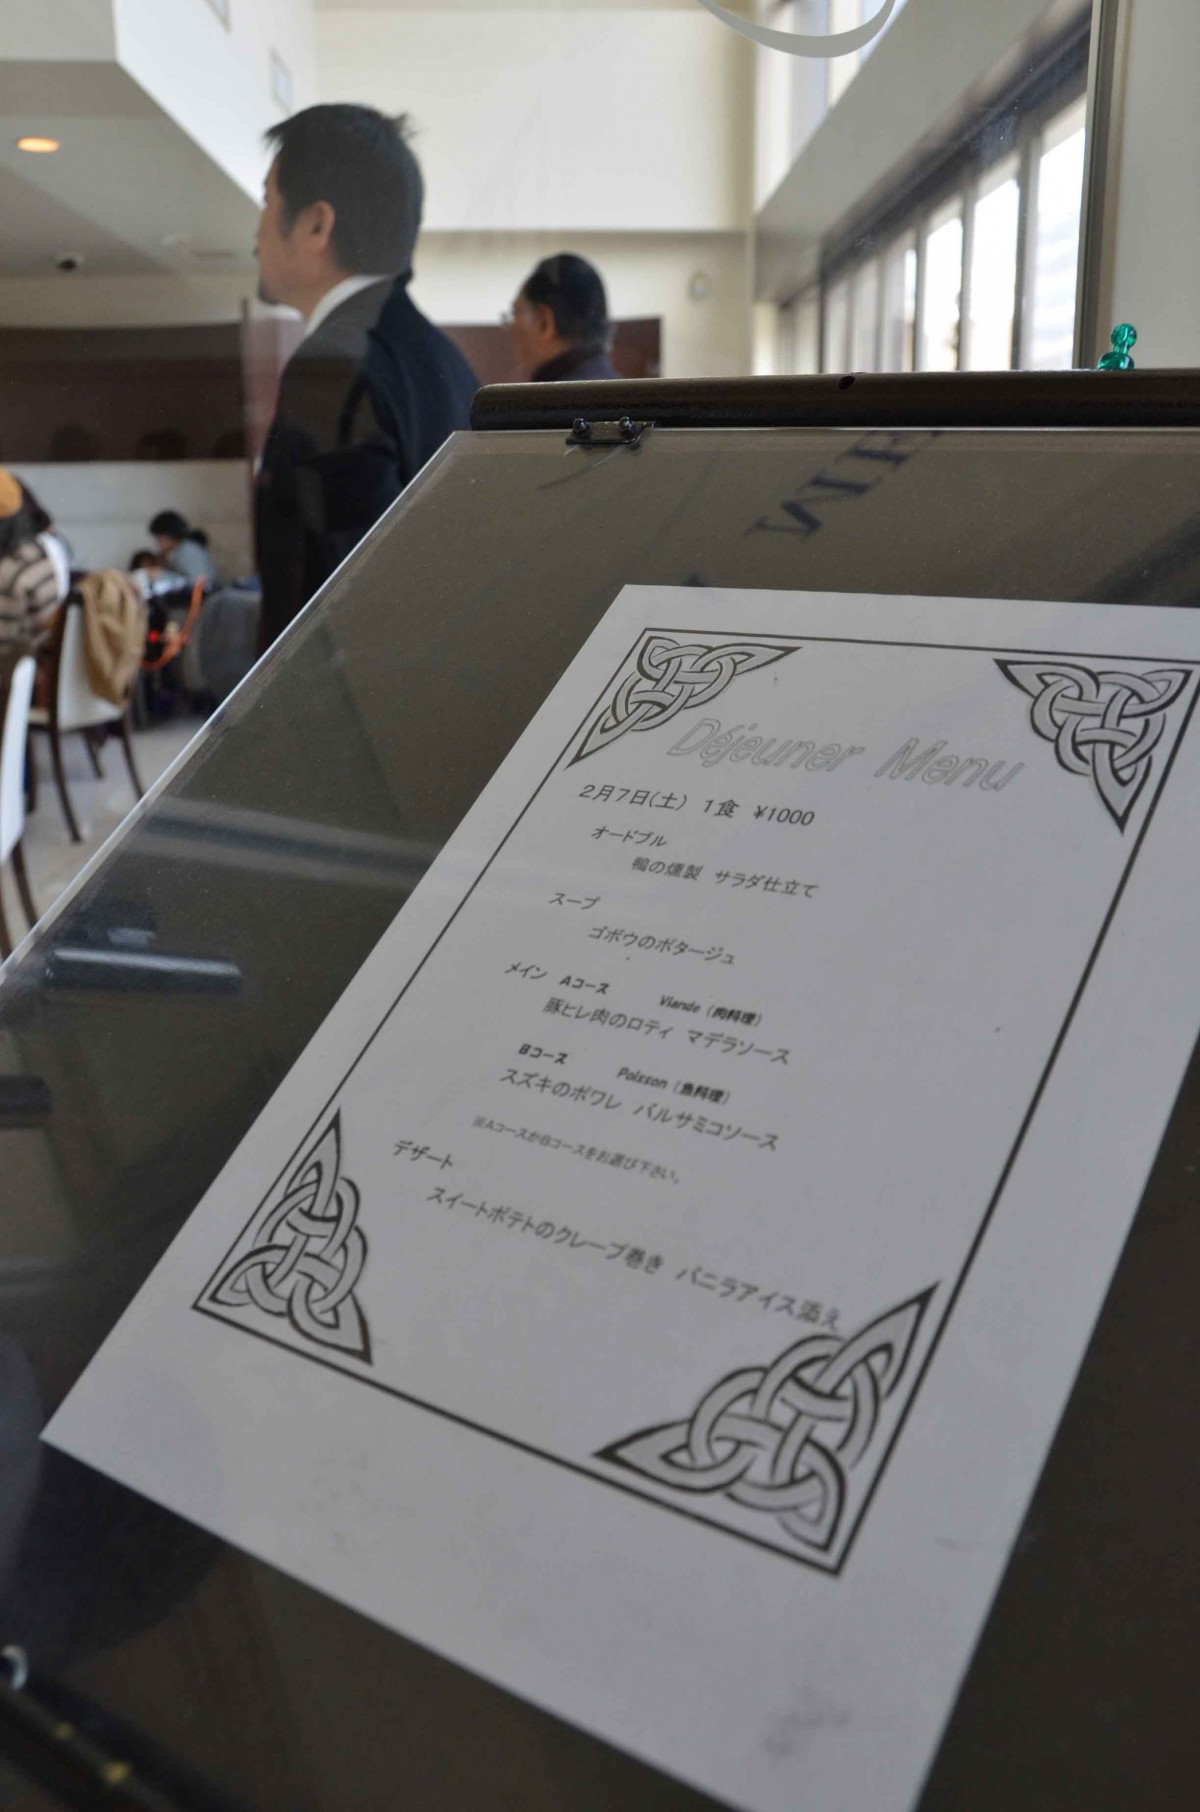 ME
Déjeuner Menu
2月7日(土) 1食 ¥1000
オードブル
鴨の燻製 サラダ仕立て
スープ
ゴボウのポタージュ
メイン Aコース Viande (肉料理)
豚ヒレ肉のロティ マデラソース
Bコース Poisson (魚料理)
スズキのポワレ バルサミコソース
※AコースかBコースをお選び下さい。
デザート
スイートポテトのクレープ巻き バニラアイス添え